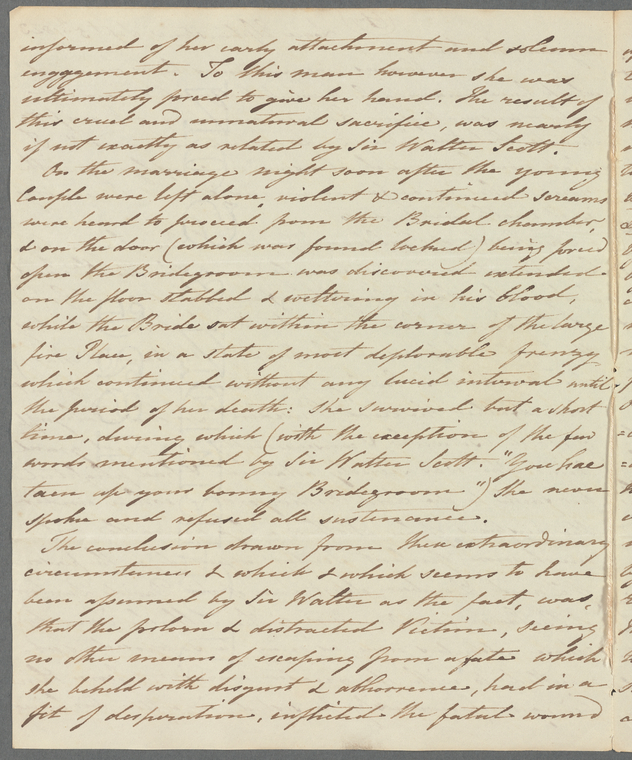 informed of her early attachment and solemn
engagement. To this man however she was
ultimately forced to give her hand. The result of
this cruel and unnatural sacrifice, was nearly
if not exactly as related by Sir Walter Scott.
On the marriage night soon after the young
Couple were left alone, violent & continued screams
were heard to proceed from the Bridal chamber,
& on the door (which was found locked) being forced
open the Bridegroom was discovered extended
on the floor stabbed & weltering in his blood,
while the Bride sat within the corner of the large
fire Place, in a state of most deplorable frenzy
which continued without any lucid interval until
the period of her death: she survived but a short
time, during which (with the exception of the few
words mentioned by Sir Walter Scott. "You hae
taen up your bonny Bridegroom") she never
spoke and refused all sustenance.
The conclusion drawn from these extraordinary
circumstances & which & which seems to have
been assumed by Sir Walter as the fact, was,
that the forlorn & distracted Victim, seeing
no other means of escaping from a fate which
she beheld with disgust & abhorrence, had in a
fit of desperation, inflicted the fatal wound